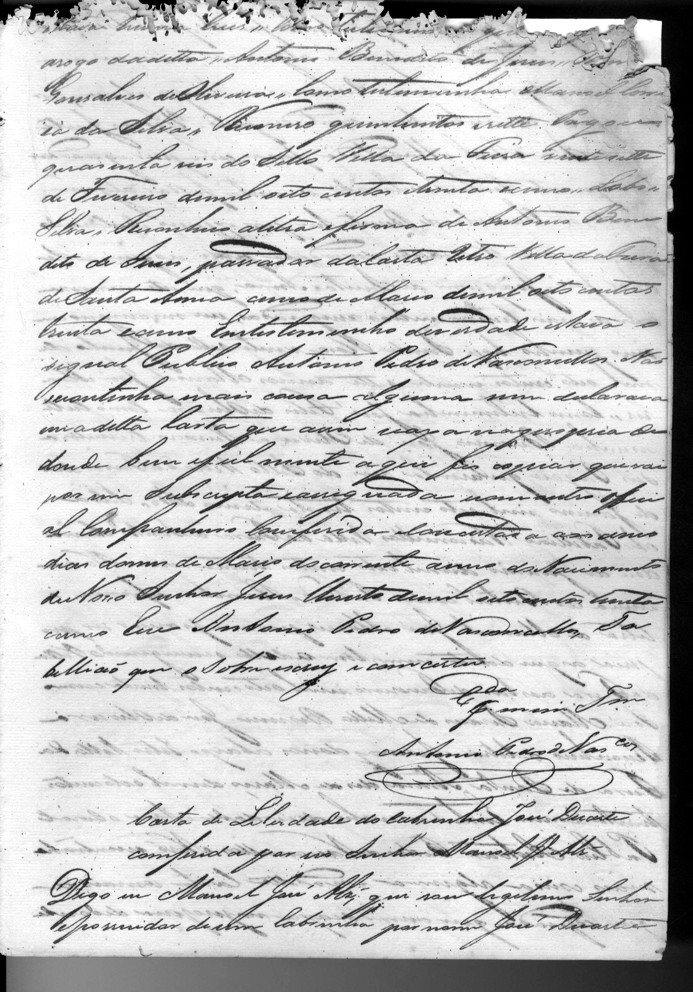 arogo dadetta, Antonio Benedito de Jesus,
Gonsalves de Oliveira, Como testemunhas Manoel Cor
ia da Silva, Numero quinhentos e sette Pagou
quarenta reis do Sello Villa da Feira vinte sette
de Fevereiro de mil oito centos etrinta ecinco,, Lobo,,
Silva,, Reconheco aletra efirma de Antonio Bene
dito de Jesus, passador da Carta Retro Villa da Feira
de Santa Anna cinco de Março demil oito centos
trinta ecinco Emtestemunho de verdade estava o
signal Publico Antonio Pedro de Vasconcellos Nao
secontinha mais cousa alguma em declarava
em adetta Carta que assim seapanaque propria de
donde bem efielmente aqui fis copiar que vai
por mim Subscripta easignada e com outro offici
al Companheiro Comferida e Concertada aos cinco
dias domes de Março do corrente anno do Nascimento
de Nosso Senhor Jesus Christo demil oito centos trinta
ecinco Eu Antonio Pedro de Vasconcellos Ta
bellião que o Sobrescrevy e comcertei
Antonio Pedro de Vas.cos
Carta de Liberdade do Cabrinha José Duarte
comferida por seu Senhor Manoel Je. Alz.
Digo eu Manoel José Alz. que sou legitimo Senhor
e possuidor de um Cabrinha por nome José Duarte